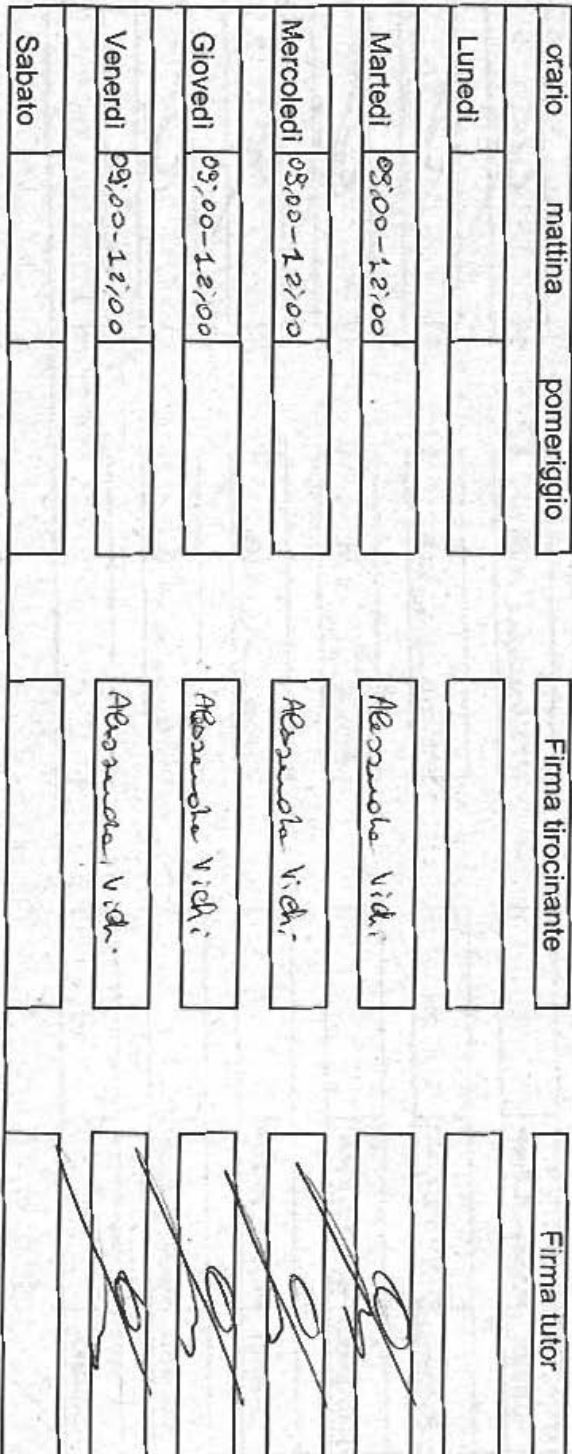 orario mattina pomeriggio Firma tirocinante Firma tutor
Lunedì
Martedì 09,00-12,00 Alessandra Vichi
Mercoledì 09,00-12,00 Alessandra Vichi
Giovedì 09,00-12,00 Alessandra Vichi
Venerdì 09,00-12,00 Alessandra Vichi
Sabato